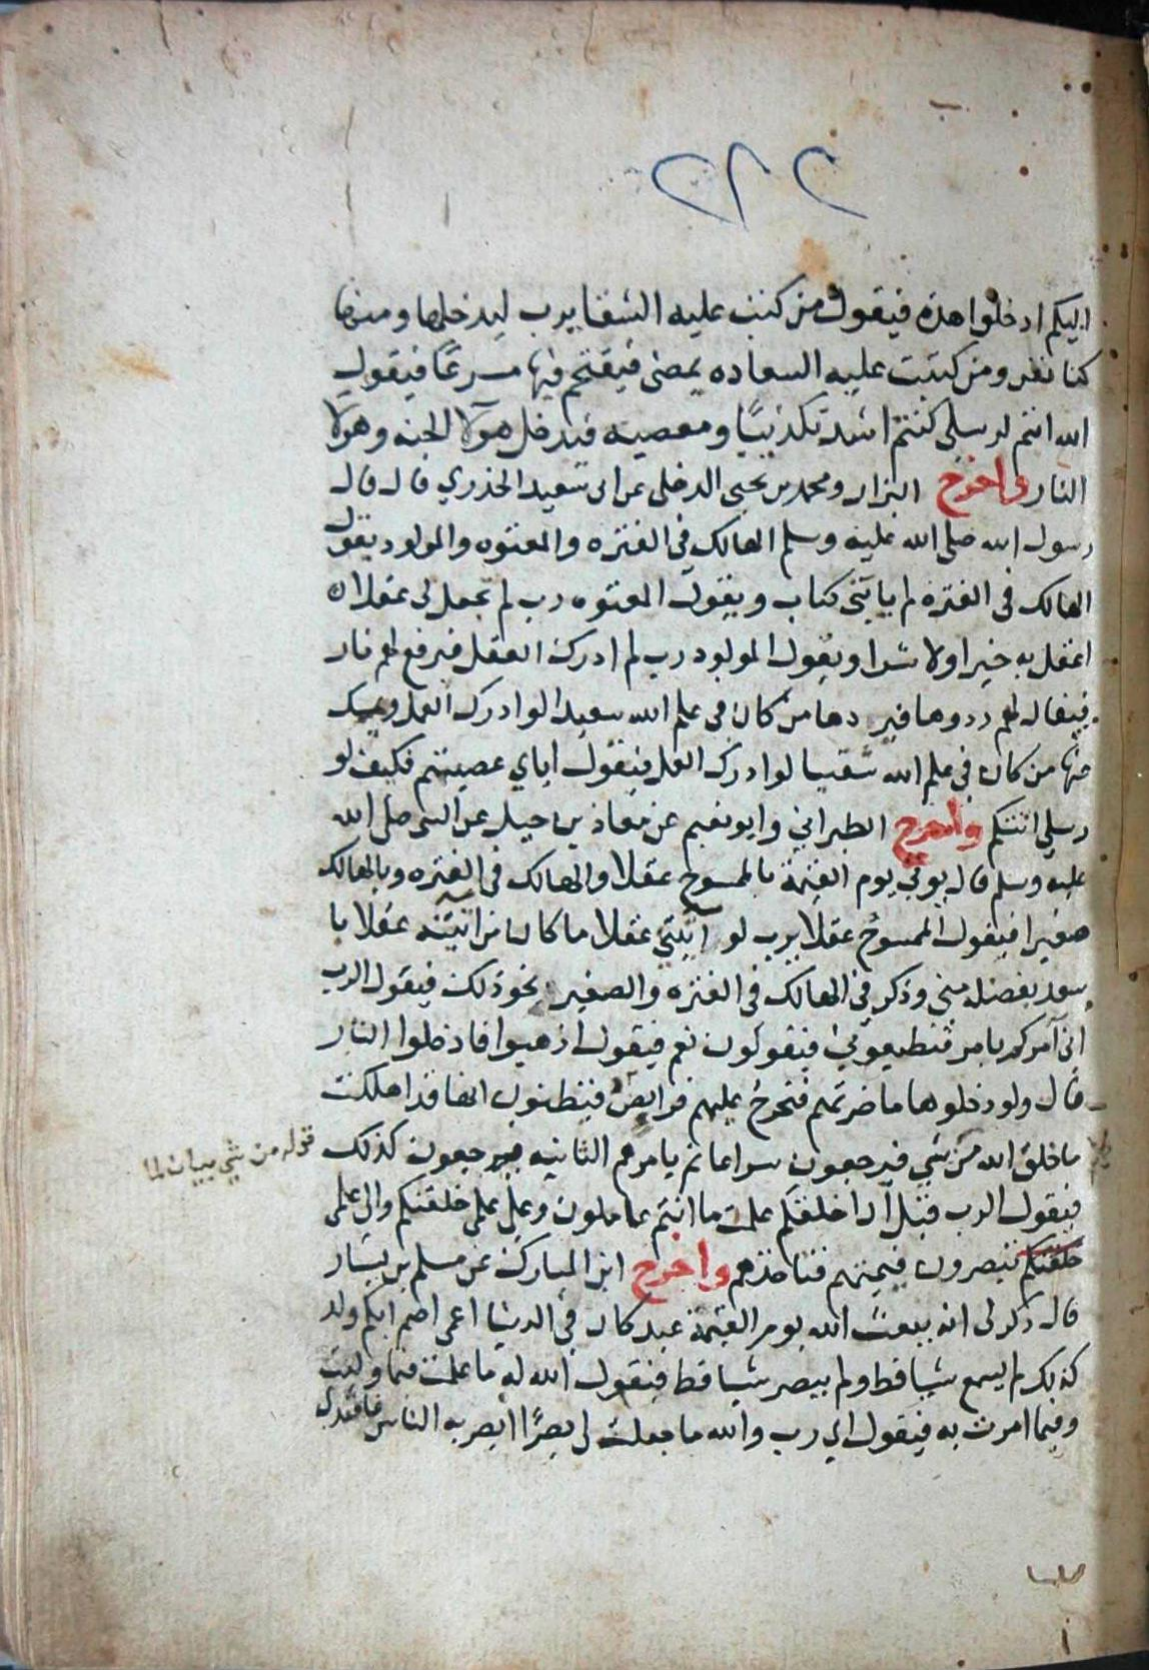 ٢٢٢
اليكم ادخلوا هذه فيقول من كتب عليه الشقا يرب ليدخلها ومنها
كنا نفر ومن كتبت عليه السعاده يمضى فيقتحم فيها مسرعا فيقول
الله انتم لرسلى كنتم اشد تكذيبًا ومعصيه فيدخل هولآ الجنه وهولا
النار واخرج البزار ومحمد بن يحيى الدهلى عن ابى سعيد الخدري قال قال
رسول الله صلى الله عليه وسلم الهالك في الفتره والمعتوه والمولود يقول
الهالك فى الفتره لم ياتنى كتاب ويقول المعتوه رب لم تجعل لى عقلا
اعقل به خيرا ولا شرا ويقول المولود رب لم ادرك العقل فيرفع لهم نار
فيقال لهم ردوها فير دها من كان فى علم الله سعيدا لو ادرك العمل ويمسك
عنها من كان فى علم الله شقيا لو ادرك العمل فيقول اياي عصيتم فكيف لو
رسلي اتتكم واخرج الطبراني وابو نعيم عن معاذ بن جبل عن النبى صلى الله
عليه وسلم قال يوتي يوم القيمة بالممسوخ عقلا والهالك فى الفتره وبالهالك
صغيرا فيقول الممسوخ عقلا يرب لو اتيتني عقلا ما كان من اتيته عقلا با
سعد بعقله منى وذكر في الهالك فى الفتره والصغير نحو ذلك فيقول الرب
انى آمركم بامر فتطيعوني فيقولون نعم فيقول اذهبوا فادخلوا النار
قال ولو دخلوها ما ضرتهم فتخرج عليهم فرايص فيظنون انها قد اهلكت
ما خلق الله من شي فيرجعون سراعا ثم يامرهم الثانيه فيرجعون كذلك
قوله من شي بيان لما
فيقول الرب قبل ان اخلقكم علمت ما انتم عاملون وعلى علمى خلقتكم والى علمى
خلقتكم تصيرون ضميهم فتاخذهم واخرج ابن المبارك عن مسلم بن يسار
قال ذكر لى انه يبعث الله يوم القيمة عبد كان في الدنيا اعمى اصم ابكم ولد
كذلك لم يسمع شيا قط ولم يبصر شيا قط فيقول الله له ما عملت فيما وليت
وفيما امرت به فيقول اي رب والله ما جعلت لى بصرًا ابصر به الناس فاقتدي